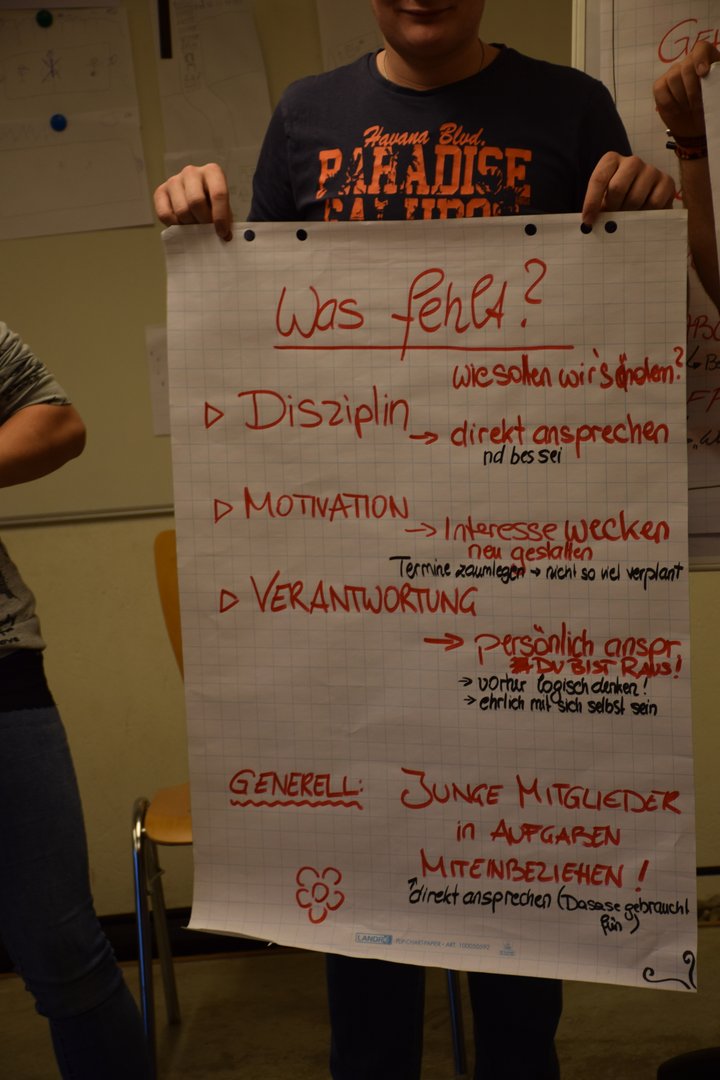 Havana Blvd.
PARADISE
Was fehlt?
wie sollen wir's ändern?
▷ Disziplin
→ direkt ansprechen
nd bes sei
▷ MOTIVATION
→ Interesse wecken
neu gestalten
Termine zaumlegen → nicht so viel verplant
▷ VERANTWORTUNG
→ persönlich anspr
DU BIST RAUS!
→ vorher logisch denken!
→ ehrlich mit sich selbst sein
GENERELL: JUNGE MITGLIEDER
in AUFGABEN
MITEINBEZIEHEN!
direkt ansprechen (Dasase gebraucht
fün)
LANDRÉ FLIPCHART-PAPIER · ART. 100050592